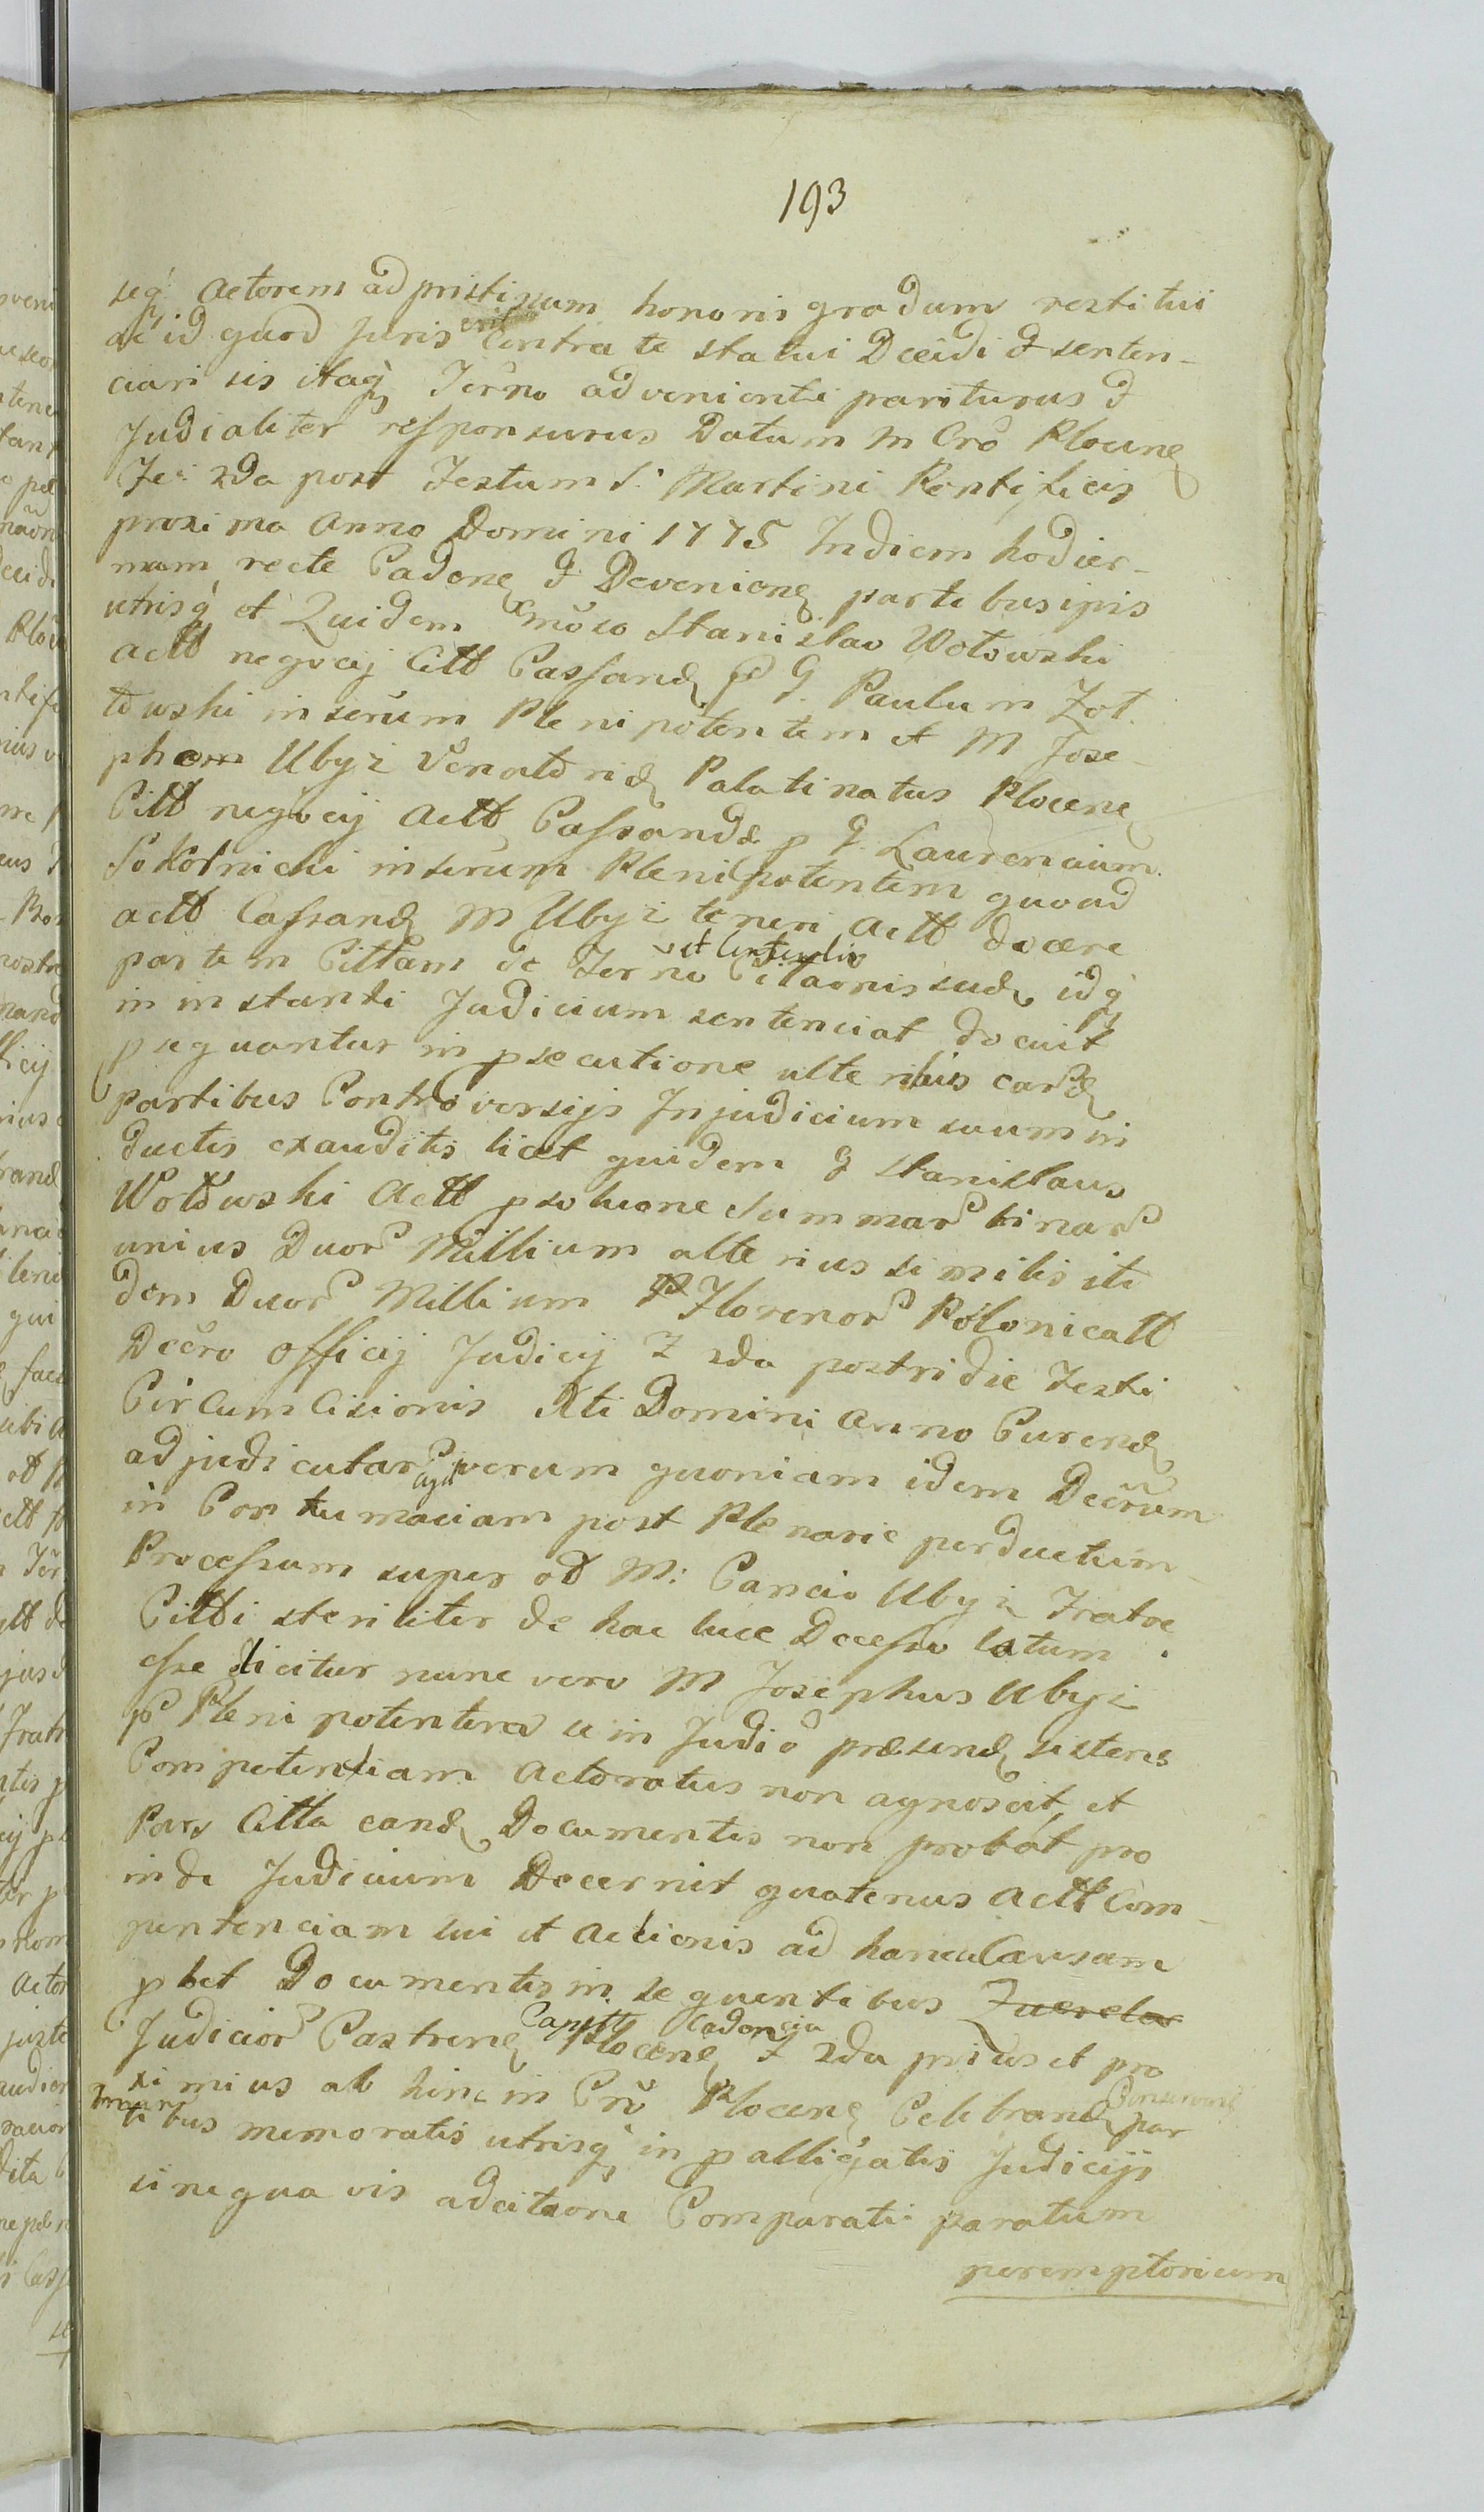 193
seq Actorem ad pristinum honoris gradum restitui
ac id quod Juris erit Contra te statui Decidi & senten-
ciari sis itaq Terno advenienti pariturus &
Judicaliter responsurus Datum in Cro Plocen
Fe: 2da post Festum S. Martini Pontificis
proxima Anno Domini 1775 In diem hodier-
nam recte Caden & Devenien partibus ipsis
utrisq et Quidem Gnoso Stanislao Wołowski
Actt negocij Citt Cassand p G. Paulum Zoł-
towski inserum Plenipotentem et M Jose-
phom Ubysz Venatorid Palatinatus Plocen
Citt negocij Actt Cassands p G. Laurencium
Sokolnicki inserum Plenipotentem quoad
actt Cassand M Ubysz teneri Actt docere
partem Cittam de Terno Citaonis sud, idq
et Contendio
in instanti Judicium sentenciat docuit
psequantur in psecutione ulterius card
partibus Controversijs In judicium suum in
ductis exauditis licet quidem G Stanislaus
Wołowski Actt psolucione Summar binar
unius Duor Millium alterius similis iti
dem Duor Millium Florenor Polonicatt
Decro Officij Judicij F 2da postridie Festi
Circumcisionis Xti Domini Anno Curend
adjudicatar verum quoniam idem Decrum
in Contumaciam post Plenarie perductum
Processum super ol M: Cancio Ubysz Fratre
Citti steriliter de hac luce Decesso latum
esse dicitur nunc vero M Josephus Ubysz
p Plenipotentem se in Judio præsend sistens
Competentiam Actoratus non agnoscit, et
Pars Citta eand Documentis non probat, pro
inde Judicium Decernit quatenus Actt Com-
petenciam sui et Actionis ad hanc Causam
pbet Documentis in sequentibus Querelar
Judicior Castren Capitt Plocen Cadencia F 2da prius et pro
ximius ab hinc in Cro Plocen Celebrand par
tibus memoratis utrisq in palligatis Judicijs
sine quavis adcitaone Comparati paratum
peremptorium